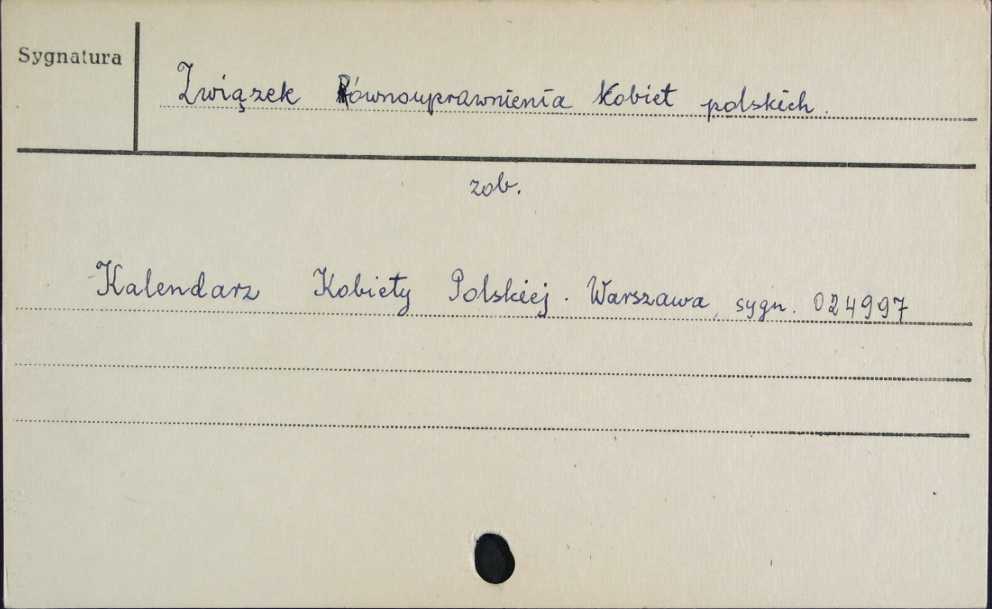 Sygnatura
Związek Równouprawnienia Kobiet polskich.
zob.
Kalendarz Kobiety Polskiej. Warszawa, sygn. 024997